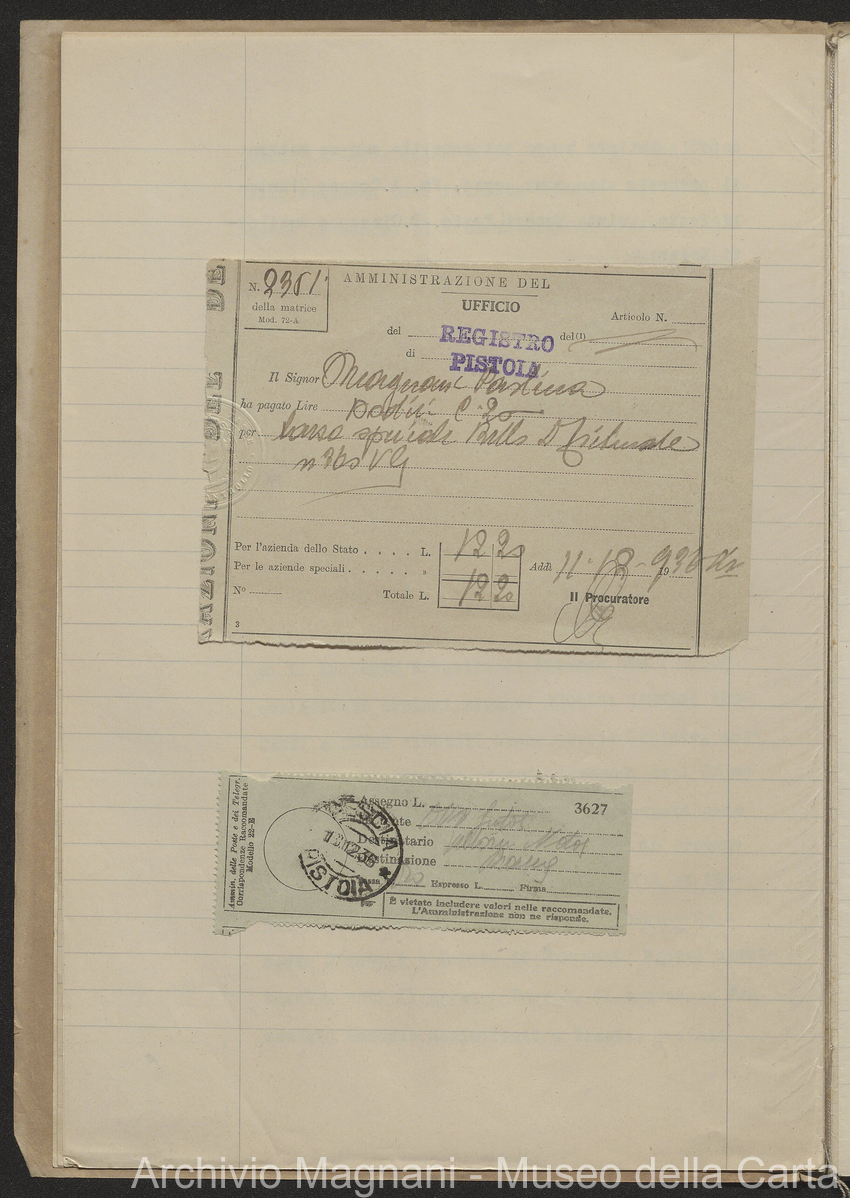 N. 2351
della matrice
Mod. 72-A
AMMINISTRAZIONE DEL
UFFICIO
Articolo N.
del REGISTRO del (1)
di PISTOIA
Il Signor Magnani
ha pagato Lire Dodici C 20
per tassa speciale Tribunale
n 365 VG
Per l'azienda dello Stato . . . . . L. 12 20
Per le aziende speciali . . . . . . »
Nº Totale L. 12 20
Addì 11-18-936 19
Il Procuratore
3
AZIONE DEL DE
Ammin. delle Poste e dei Telegr.
Corrispondenze Raccomandate
Modello 22-E
Assegno L. 3627
Destinatario
Destinazione
Tassa Espresso L. Firma
PESCIA
12.12.36
PISTOIA
È vietato includere valori nelle raccomandate.
L'Amministrazione non ne risponde.
Archivio Magnani - Museo della Carta